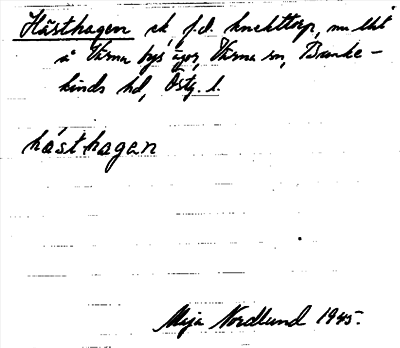 Hästhagen rk, f.d. knekttorp, nu lht
å Värna bys ägor, Värna sn, Banke-
kinds hd, Östg. l.
hásthagen
Maja Nordlund 1945.